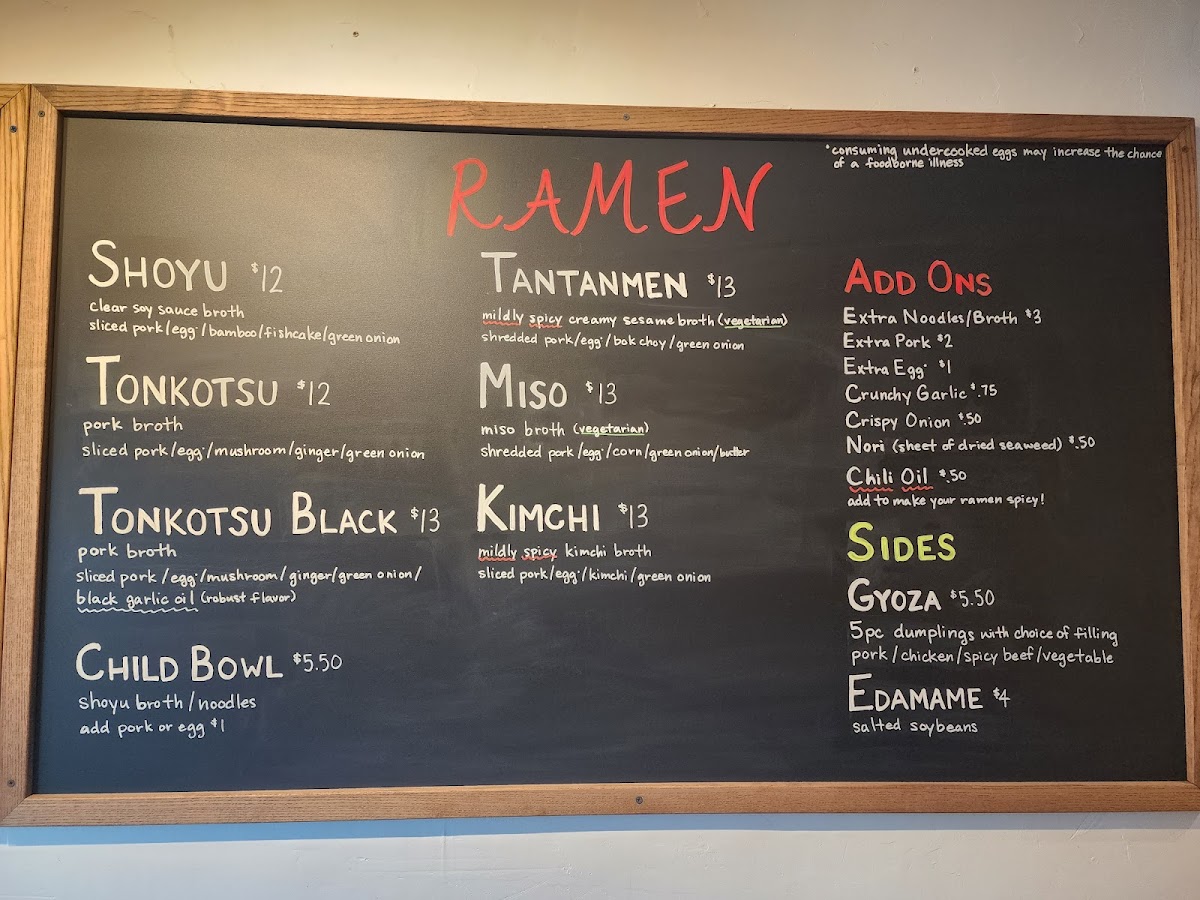 *consuming undercooked eggs may increase the chance
of a foodborne illness
RAMEN
SHOYU $12
clear soy sauce broth
sliced pork/egg*/bamboo/fishcake/green onion
TONKOTSU $12
pork broth
sliced pork/egg*/mushroom/ginger/green onion
TONKOTSU BLACK $13
pork broth
sliced pork/egg*/mushroom/ginger/green onion/
black garlic oil (robust flavor)
CHILD BOWL $5.50
shoyu broth/noodles
add pork or egg $1
TANTANMEN $13
mildly spicy creamy sesame broth (vegetarian)
shredded pork/egg*/bok choy/green onion
MISO $13
miso broth (vegetarian)
shredded pork/egg*/corn/green onion/butter
KIMCHI $13
mildly spicy kimchi broth
sliced pork/egg*/kimchi/green onion
ADD ONS
Extra Noodles/Broth $3
Extra Pork $2
Extra Egg* $1
Crunchy Garlic $.75
Crispy Onion $.50
Nori (sheet of dried seaweed) $.50
Chili Oil $.50
add to make your ramen spicy!
SIDES
GYOZA $5.50
5pc dumplings with choice of filling
pork/chicken/spicy beef/vegetable
EDAMAME $4
salted soybeans